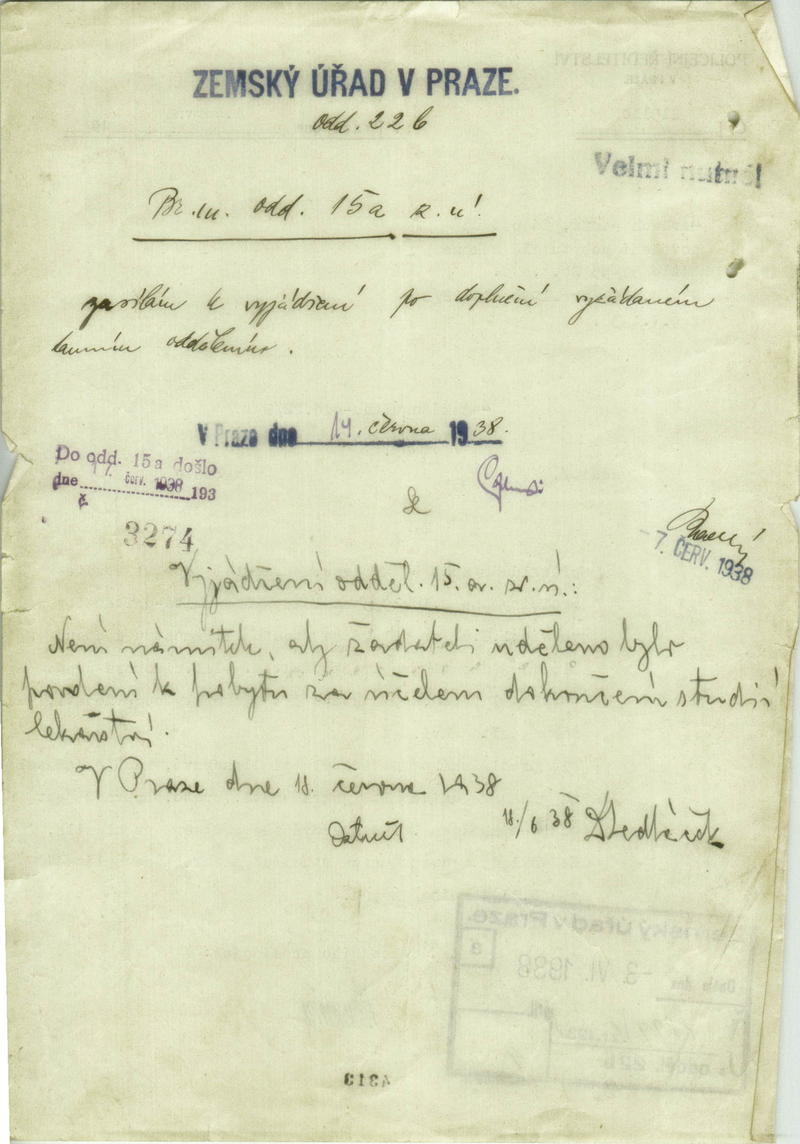 ZEMSKÝ ÚŘAD V PRAZE.
odd. 22 b
Velmi nutné!
odd. 15a z. ú.
zasílám k vyjádření po doplnění vyžádaném
tamním oddělením.
V Praze dne 14. června 1938.
Do odd. 15a došlo
dne 17. ČERV. 1938 193
č.
3274
-7. ČERV. 1938
Vyjádření odděl. 15.a. z. ú.:
Není námitek, aby žadateli uděleno bylo
povolení k pobytu za účelem dokončení studií
lékařství.
V Praze dne 18. června 1938
18./6 38
Zemský úřad v Praze.
a
Došlo dne -3. VI. 1938
příl.
4313